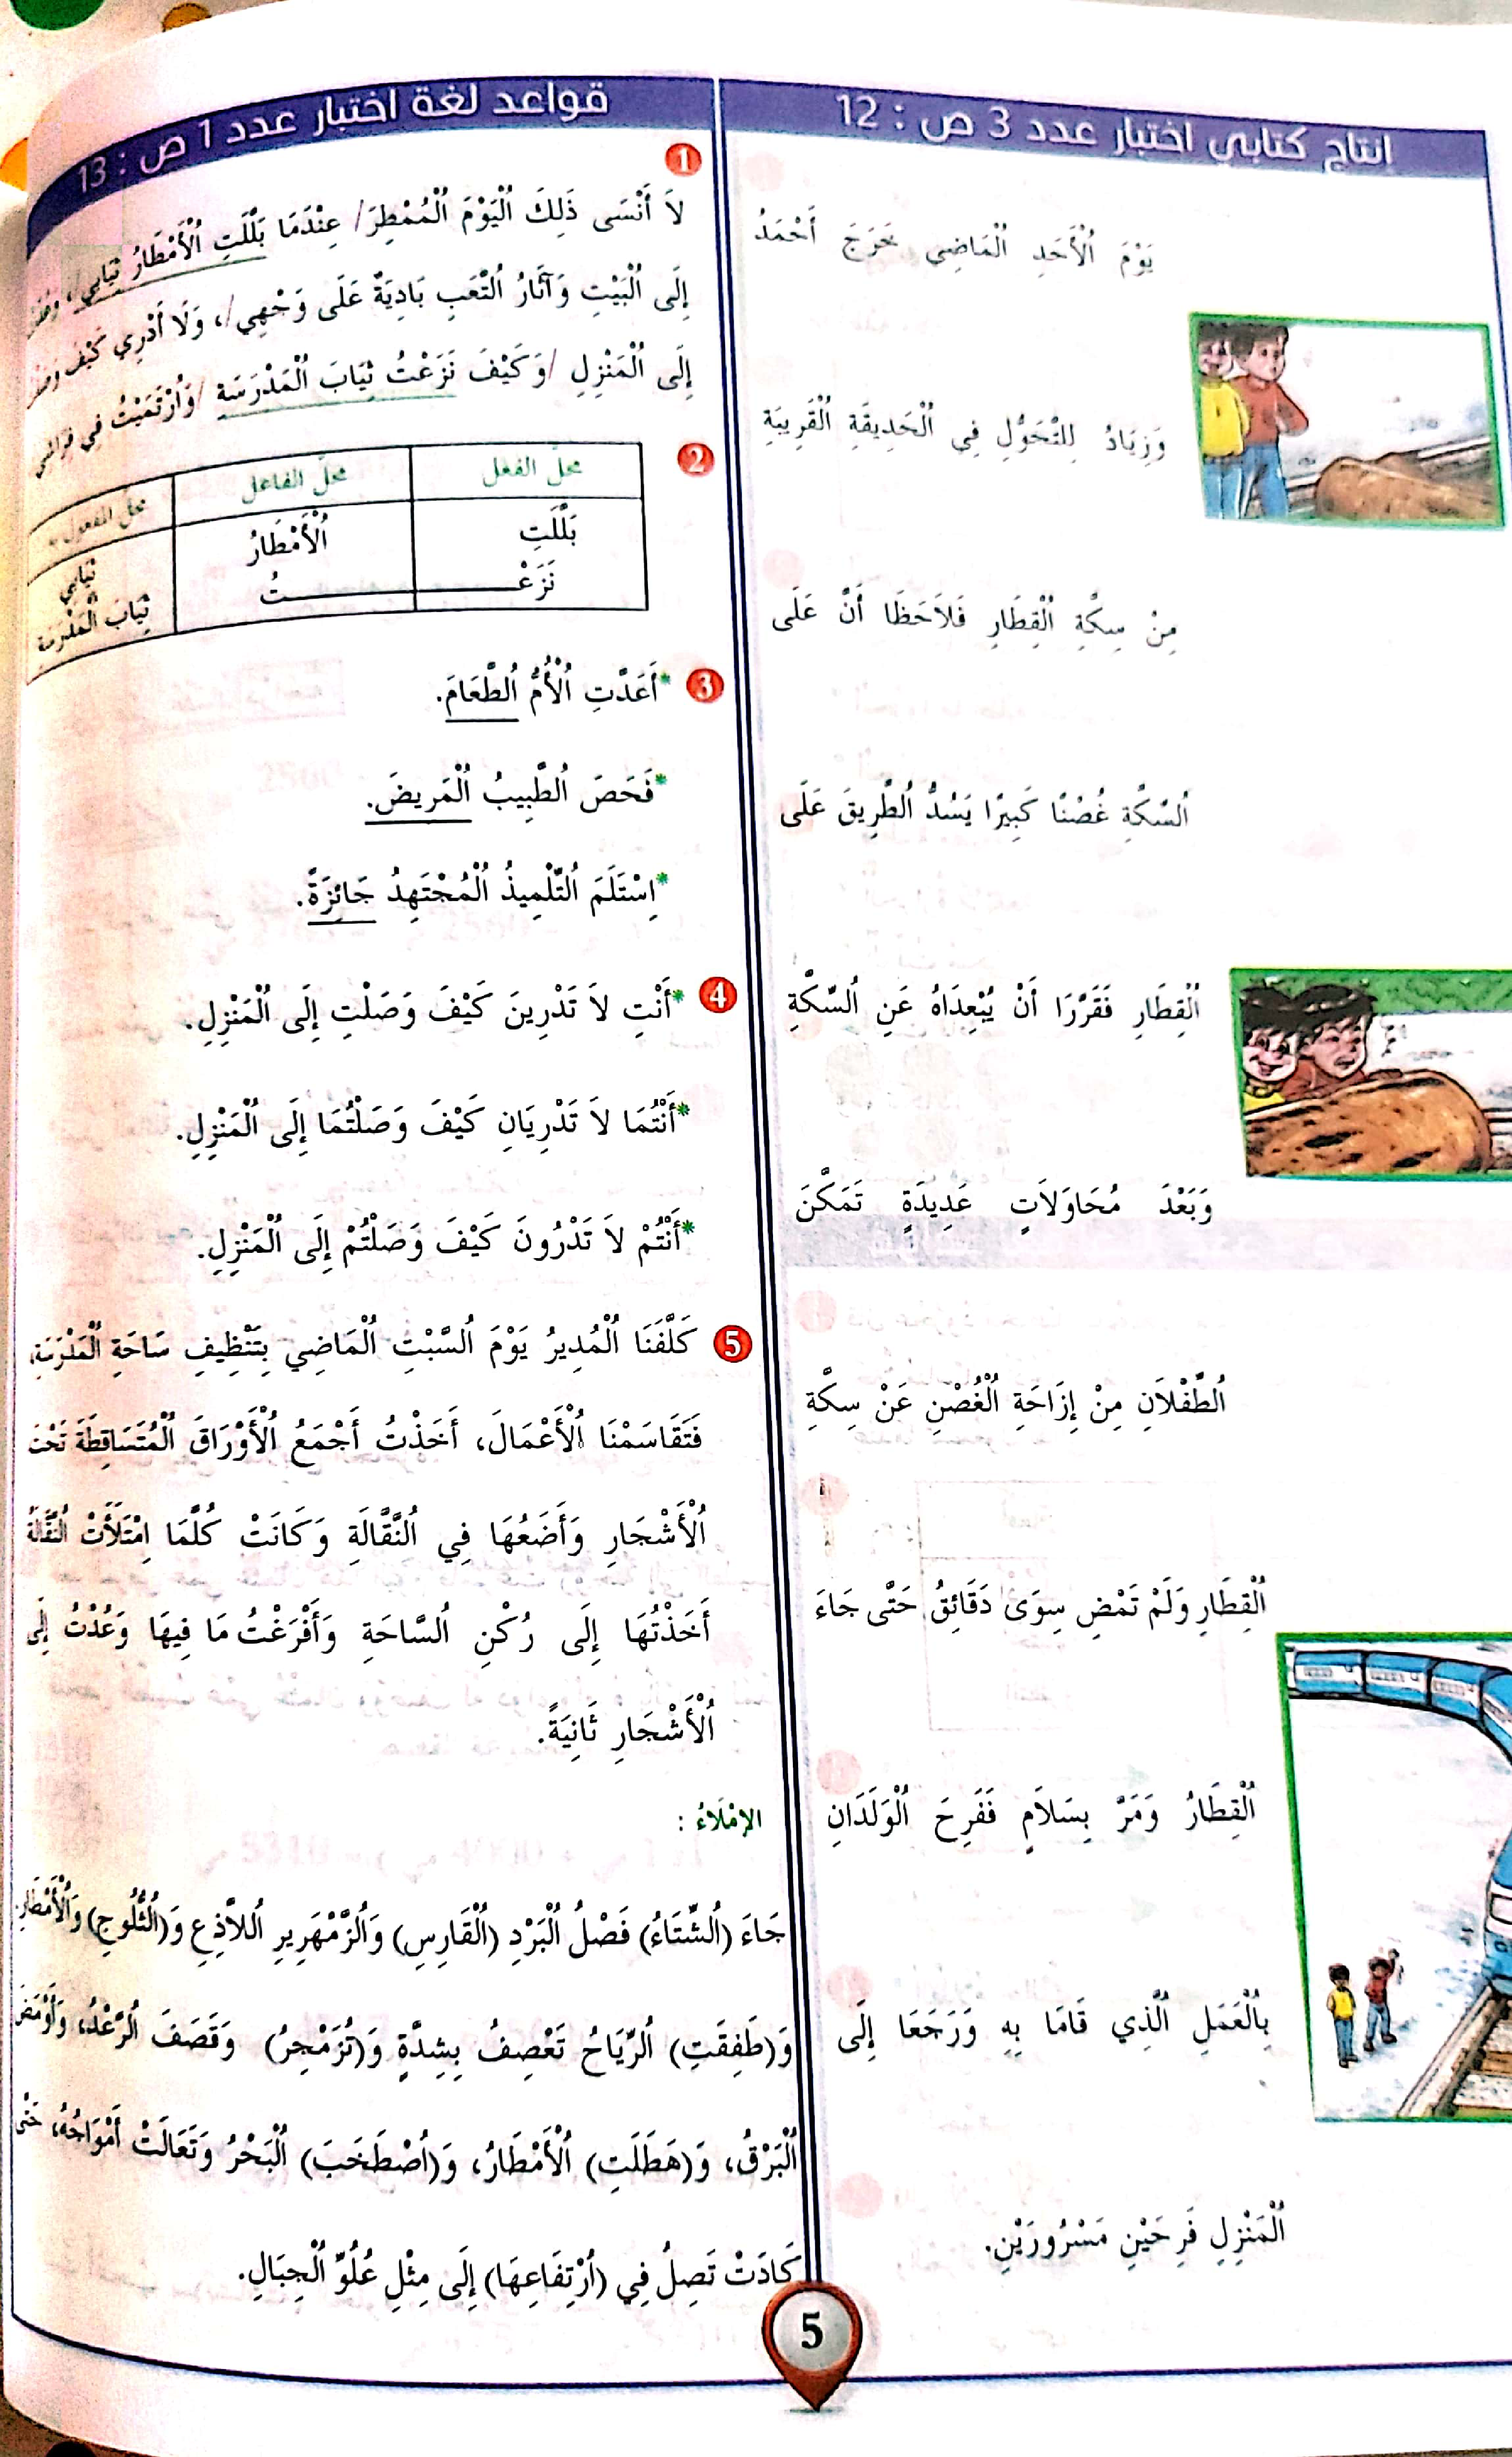 إنتاج كتابي اختبار عدد 3 ص : 12
يَوْمَ ٱلْأَحَدِ ٱلْمَاضِي خَرَجَ أَحْمَدُ
وَزِيَادُ لِلتَّجَوُّلِ فِي ٱلْحَدِيقَةِ ٱلْقَرِيبَةِ
مِنْ سِكَّةِ ٱلْقِطَارِ فَلاَحَظَا أَنَّ عَلَى
ٱلسِّكَّةِ غُصْنًا كَبِيرًا يَسُدُّ ٱلطَّرِيقَ عَلَى
ٱلْقِطَارِ فَقَرَّرَا أَنْ يُبْعِدَاهُ عَنِ ٱلسِّكَّةِ
وَبَعْدَ مُحَاوَلاَتٍ عَدِيدَةٍ تَمَكَّنَ
ٱلطِّفْلاَنِ مِنْ إِزَاحَةِ ٱلْغُصْنِ عَنْ سِكَّةِ
ٱلْقِطَارِ وَلَمْ تَمْضِ سِوَى دَقَائِقُ حَتَّى جَاءَ
ٱلْقِطَارُ وَمَرَّ بِسَلاَمٍ فَفَرِحَ ٱلْوَلَدَانِ
بِٱلْعَمَلِ ٱلَّذِي قَامَا بِهِ وَرَجَعَا إِلَى
ٱلْمَنْزِلِ فَرِحَيْنِ مَسْرُورَيْنِ.
قواعد لغة اختبار عدد 1 ص : 13
1
لاَ أَنْسَى ذَلِكَ ٱلْيَوْمَ ٱلْمُمْطِرَ/ عِنْدَمَا بَلَّلَتِ ٱلْأَمْطَارُ ثِيَابِي/،
إِلَى ٱلْبَيْتِ وَآثَارُ ٱلتَّعَبِ بَادِيَةٌ عَلَى وَجْهِي/، وَلَا أَدْرِي كَيْفَ
إِلَى ٱلْمَنْزِلِ /وَكَيْفَ نَزَعْتُ ثِيَابَ ٱلْمَدْرَسَةِ /وَٱرْتَمَيْتُ فِي فِرَاشِي
2
محلّ الفعل محلّ الفاعل محلّ المفعول به
بَلَّلَتِ ٱلْأَمْطَارُ ثِيَابِي
نَزَعْـ ـتُ ثِيَابَ ٱلْمَدْرَسَةِ
3 *أَعَدَّتِ ٱلْأُمُّ ٱلطَّعَامَ.
*فَحَصَ ٱلطَّبِيبُ ٱلْمَرِيضَ.
*اِسْتَلَمَ ٱلتِّلْمِيذُ ٱلْمُجْتَهِدُ جَائِزَةً.
4 *أَنْتِ لاَ تَدْرِينَ كَيْفَ وَصَلْتِ إِلَى ٱلْمَنْزِلِ.
*أَنْتُمَا لاَ تَدْرِيَانِ كَيْفَ وَصَلْتُمَا إِلَى ٱلْمَنْزِلِ.
*أَنْتُمْ لاَ تَدْرُونَ كَيْفَ وَصَلْتُمْ إِلَى ٱلْمَنْزِلِ.
5 كَلَّفَنَا ٱلْمُدِيرُ يَوْمَ ٱلسَّبْتِ ٱلْمَاضِي بِتَنْظِيفِ سَاحَةِ ٱلْمَدْرَسَةِ،
فَتَقَاسَمْنَا ٱلْأَعْمَالَ، أَخَذْتُ أَجْمَعُ ٱلْأَوْرَاقَ ٱلْمُتَسَاقِطَةَ تَحْتَ
ٱلْأَشْجَارِ وَأَضَعُهَا فِي ٱلنَّقَّالَةِ وَكَانَتْ كُلَّمَا اِمْتَلَأَتْ ٱلنَّقَّالَةُ
أَخَذْتُهَا إِلَى رُكْنِ ٱلسَّاحَةِ وَأَفْرَغْتُ مَا فِيهَا وَعُدْتُ إِلَى
ٱلْأَشْجَارِ ثَانِيَةً.
الإِمْلَاءُ :
جَاءَ (ٱلشِّتَاءُ) فَصْلُ ٱلْبَرْدِ (ٱلْقَارِسِ) وَٱلزَّمْهَرِيرِ ٱللاَّذِعِ وَ(ٱلثُّلُوجِ) وَٱلْأَمْطَارِ.
وَ(طَفِقَتِ) ٱلرِّيَاحُ تَعْصِفُ بِشِدَّةٍ وَ(تُزَمْجِرُ) وَقَصَفَ ٱلرَّعْدُ، وَأَوْمَضَ
ٱلْبَرْقُ، وَ(هَطَلَتِ) ٱلْأَمْطَارُ، وَ(ٱصْطَخَبَ) ٱلْبَحْرُ وَتَعَالَتْ أَمْوَاجُهُ، حَتَّى
كَادَتْ تَصِلُ فِي (ٱرْتِفَاعِهَا) إِلَى مِثْلِ عُلُوِّ ٱلْجِبَالِ.
5